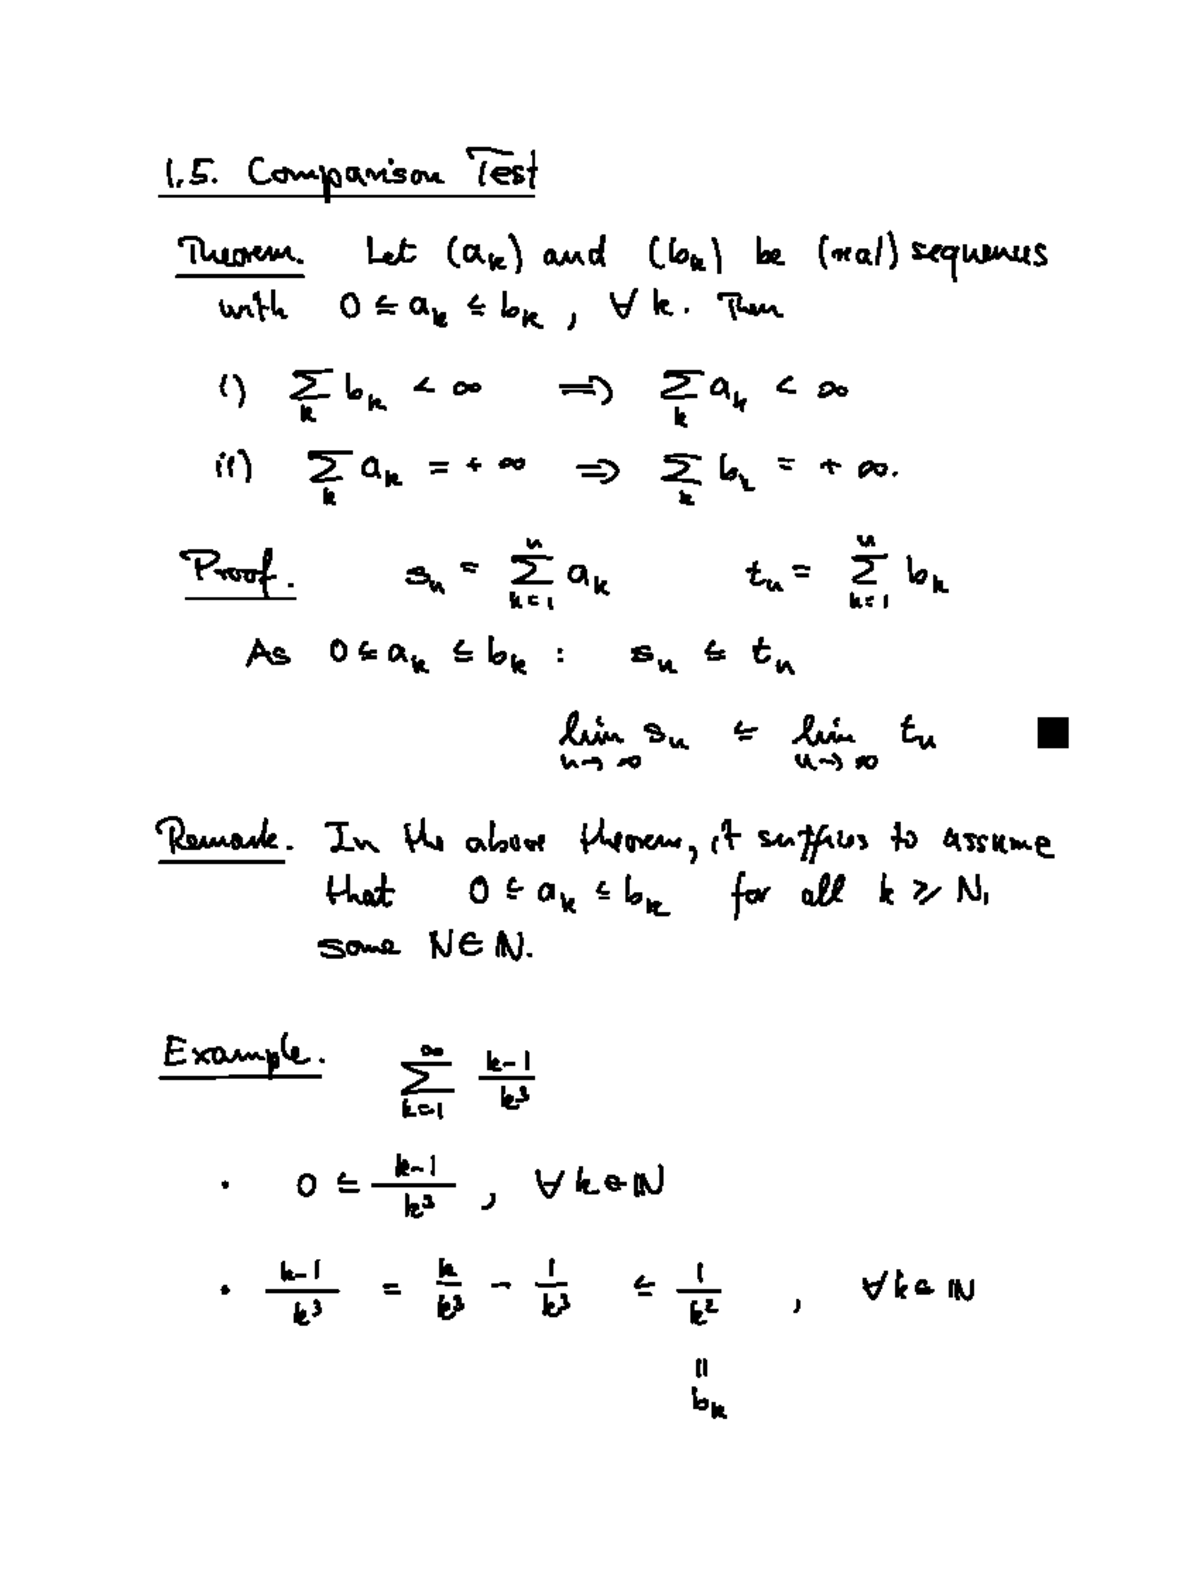 1.5. Comparison Test
Theorem. Let (aₖ) and (bₖ) be (real) sequences
with 0 ≤ aₖ ≤ bₖ , ∀ k. Then
i) ∑ₖ bₖ < ∞ ⟹ ∑ₖ aₖ < ∞
ii) ∑ₖ aₖ = + ∞ ⟹ ∑ₖ bₖ = + ∞.
Proof. sₙ = ∑ₖ₌₁ⁿ aₖ tₙ = ∑ₖ₌₁ⁿ bₖ
As 0 ≤ aₖ ≤ bₖ : sₙ ≤ tₙ
lim_{n→∞} sₙ ≤ lim_{n→∞} tₙ ■
Remark. In the above theorem, it suffices to assume
that 0 ≤ aₖ ≤ bₖ for all k ⩾ N,
some N ∈ ℕ.
Example. ∑_{k=1}^∞ (k-1)/k³
· 0 ≤ (k-1)/k³ , ∀ k ∈ ℕ
· (k-1)/k³ = k/k³ - 1/k³ ≤ 1/k² , ∀ k ∈ ℕ
||
bₖ